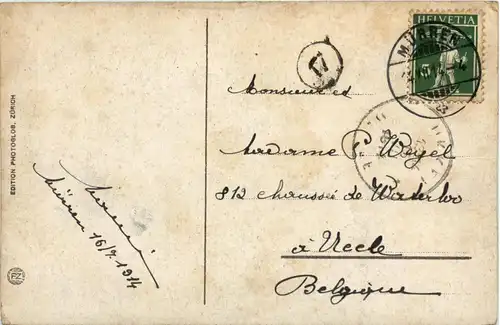 HELVETIA
MÜRREN
17
Monsieur et
Madame C. Weyel
812 chaussée de Waterloo
à Uccle
Belgique
Mürren 16/7. 1914
EDITION PHOTOGLOB, ZÜRICH